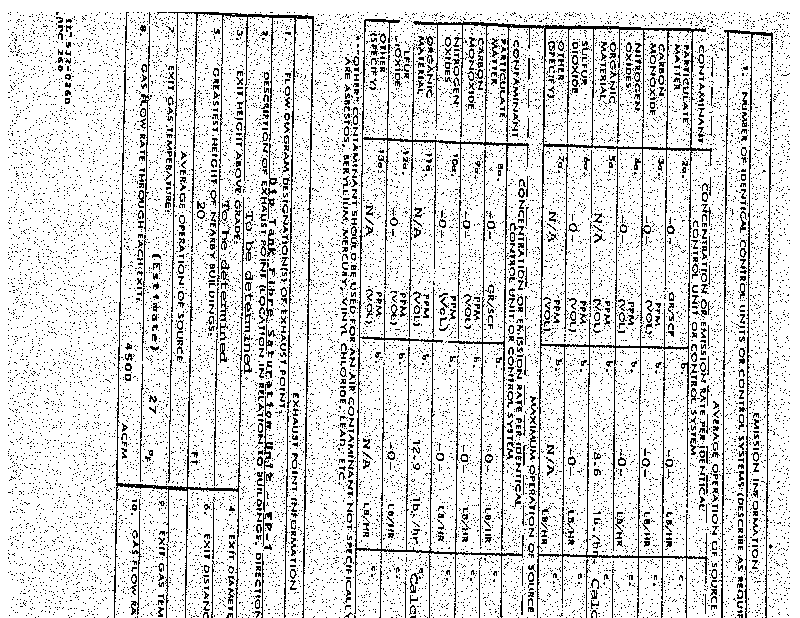 EMISSION INFORMATION
1. NUMBER OF IDENTICAL CONTROL UNITS OR CONTROL SYSTEMS (DESCRIBE AS REQUIR
AVERAGE OPERATION OF SOURCE
CONTAMINANT CONCENTRATION OR EMISSION RATE PER IDENTICAL CONTROL UNIT OR CONTROL SYSTEM
PARTICULATE MATTER 2a. -0- GR/SCF b. -0- LB/HR c.
CARBON MONOXIDE 3a. -0- PPM (VOL) b. -0- LB/HR c.
NITROGEN OXIDES 4a. -0- PPM (VOL) b. -0- LB/HR c.
ORGANIC MATERIAL 5a. N/A PPM (VOL) b. 8.6 lb./hr. c. Calc
SULFUR DIOXIDE 6a. -0- PPM (VOL) b. -0- LB/HR c.
OTHER (SPECIFY) 7a. N/A PPM (VOL) b. N/A LB/HR c.
MAXIMUM OPERATION OF SOURCE
CONTAMINANT CONCENTRATION OR EMISSION RATE PER IDENTICAL CONTROL UNIT OR CONTROL SYSTEM
PARTICULATE MATTER 8a. -0- GR/SCF b. -0- LB/HR c.
CARBON MONOXIDE 9a. -0- PPM (VOL) b. -0- LB/HR c.
NITROGEN OXIDES 10a. -0- PPM (VOL) b. -0- LB/HR c.
ORGANIC MATERIAL 11a. N/A PPM (VOL) b. 12.9 lb./hr. c. Calc
DIOXIDE 12a. -0- PPM (VOL) b. -0- LB/HR c.
OTHER (SPECIFY) 13a. N/A PPM (VOL) b. N/A LB/HR c.
"OTHER" CONTAMINANT SHOULD BE USED FOR AN AIR CONTAMINANT NOT SPECIFICALLY
ARE ASBESTOS, BERYLLIUM, MERCURY, VINYL CHLORIDE, LEAD, ETC.
EXHAUST POINT INFORMATION
1. FLOW DIAGRAM DESIGNATION(S) OF EXHAUST POINT:
Dip Tank Fibre Saturation Unit - EP-1
2. DESCRIPTION OF EXHAUST POINT (LOCATION IN RELATION TO BUILDINGS, DIRECTION
To be determined
3. EXIT HEIGHT ABOVE GRADE: To be determined
4. EXIT DIAMETE
5. GREATEST HEIGHT OF NEARBY BUILDINGS: 20 FT
6. EXIT DISTANC
AVERAGE OPERATION OF SOURCE
7. EXIT GAS TEMPERATURE: (Estimate) 27 °F
9. EXIT GAS TEM
8. GAS FLOW RATE THROUGH EACH EXIT: 4500 ACFM
10. GAS FLOW RA